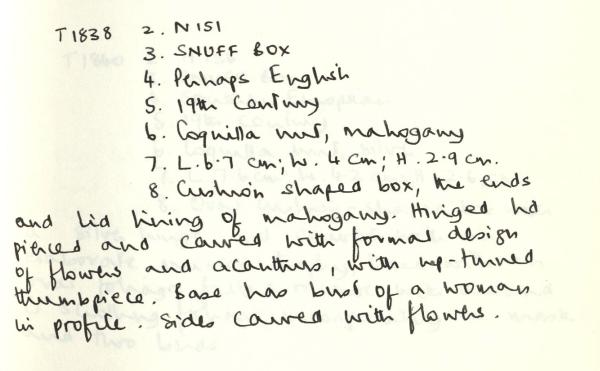 T1838 2. N151
3. SNUFF BOX
4. Perhaps English
5. 19th Century
6. Coquilla nut, mahogany
7. L. 6.7 cm; W. 4 cm; H. 2.9 cm.
8. Cushion shaped box, the ends
and lid lining of mahogany. Hinged lid
pierced and carved with formal design
of flowers and acanthus, with up-turned
thumbpiece. Base has bust of a woman
in profile. Sides carved with flowers.